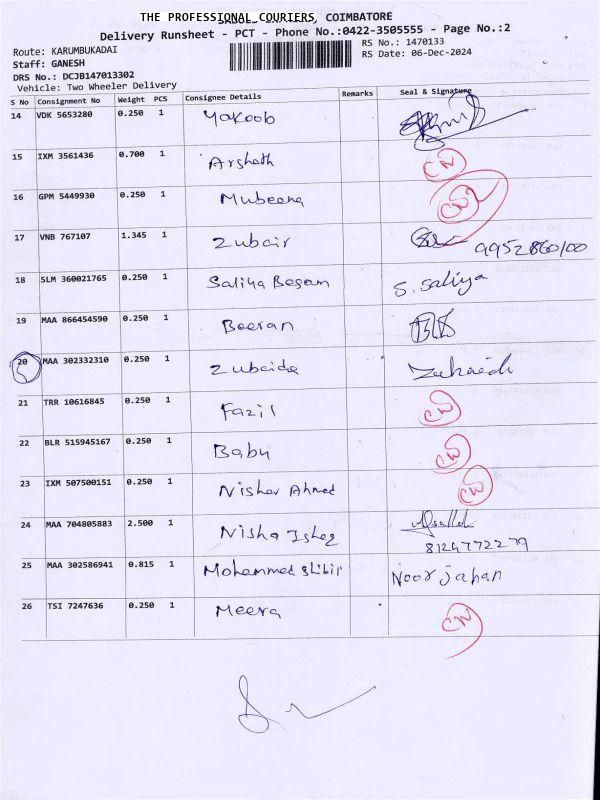 THE PROFESSIONAL COURIERS, COIMBATORE
Delivery Runsheet - PCT - Phone No.:0422-3505555 - Page No.:2
Route: KARUMBUKADAI
RS No.: 1470133
Staff: GANESH
RS Date: 06-Dec-2024
DRS No.: DCJB147013302
Vehicle: Two Wheeler Delivery
S No Consignment No Weight PCS Consignee Details Remarks Seal & Signature
14 VDK 5653280 0.250 1 Yakoob
15 IXM 3561436 0.700 1 Arshath CN
16 GPM 5449930 0.250 1 Mubeena CN
17 VNB 767107 1.345 1 Zubair 9952860100
18 SLM 360021765 0.250 1 Saliya Begam S. Saliya
19 MAA 866454590 0.250 1 Beeran
20 MAA 302332310 0.250 1 Zubaida
21 TRR 10616845 0.250 1 Fazil CN
22 BLR 515945167 0.250 1 Babu CN
23 IXM 507500151 0.250 1 Nisher Ahmed CN
24 MAA 704805883 2.500 1 Nisha Ishaq
8124772279
25 MAA 302586941 0.815 1 Mohammed Noorjahan
26 TSI 7247636 0.250 1 Meera CN